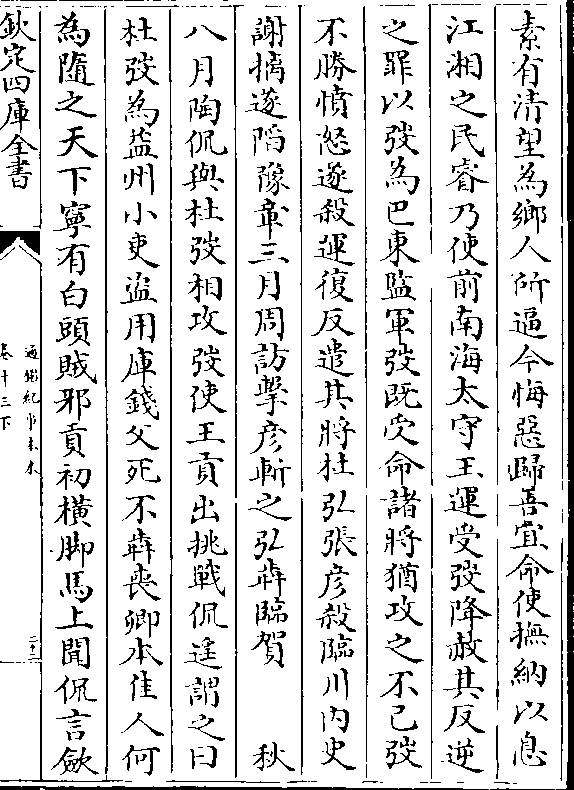 素有清望為鄉人所逼今悔惡歸善宜命使撫納以息
江湘之民睿乃使前南海太守王運受弢降赦其反逆
之罪以弢為巴東監軍弢既受命諸將猶攻之不已弢
不勝憤怒遂殺運復反遣其將杜弘張彦殺臨川内史
謝摛遂陷豫章三月周訪擊彦斬之弘犇臨賀　秋
八月陶侃與杜弢相攻弢使王貢出挑戰侃遥謂之曰
杜弢為益州小吏盜用庫錢父死不犇喪卿本佳人何
為隨之天下寧有白頭賊邪貢初橫脚馬上聞侃言歛
欽定四庫全書
通鑑紀事本末
卷十三下
三十二